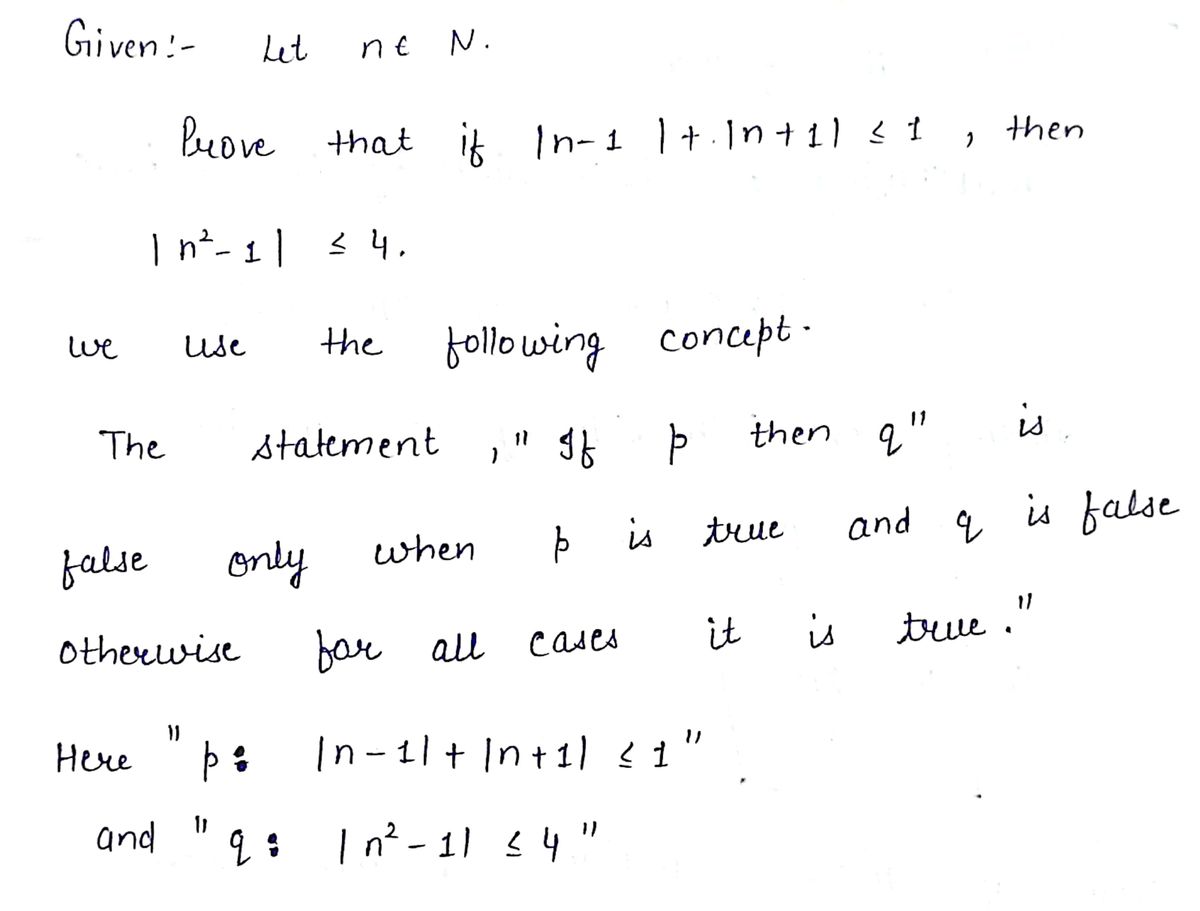 Given :- Let n ∈ N.
Prove that if |n-1 | + |n+1| ≤ 1 , then
|n²-1| ≤ 4.
we use the following concept.
The statement ," If p then q" is
false only when p is true and q is false
otherwise for all cases it is true."
Here "p: |n-1| + |n+1| ≤ 1"
and "q: |n²-1| ≤ 4"